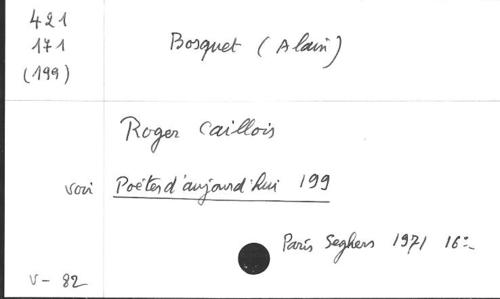 421
171
(199)
Bosquet (Alain)
Roger Caillois
voir Poètes d'aujourd'hui 199
Paris Seghers 1971 16º
V - 82